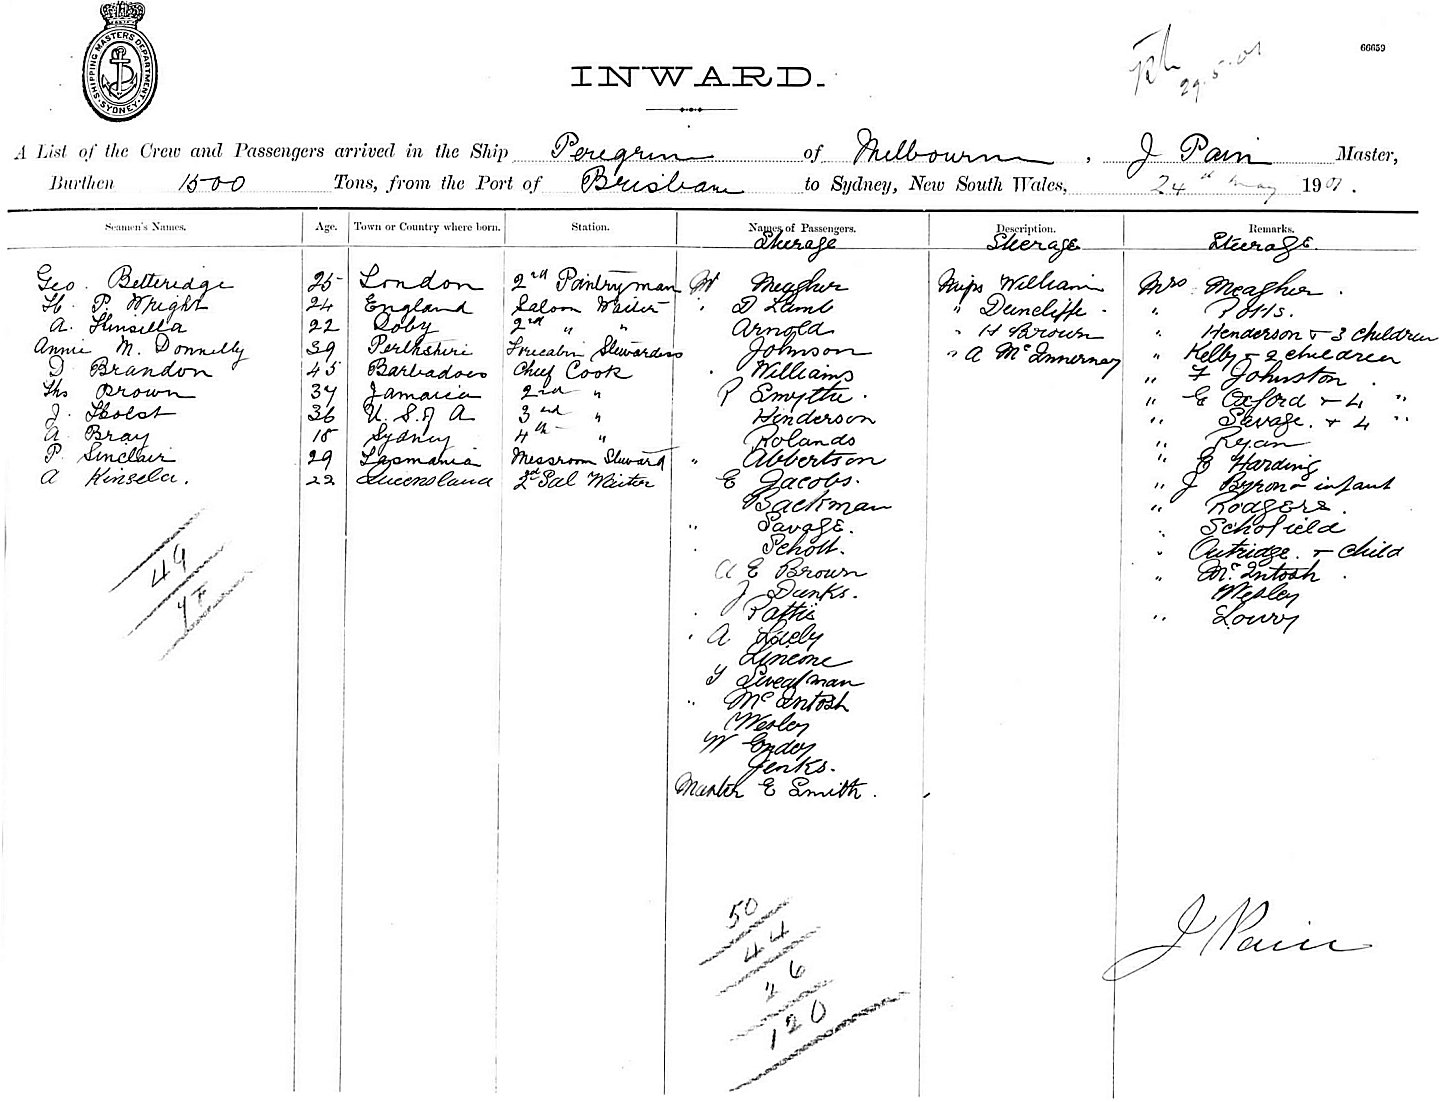 SHIPPING MASTERS DEPARTMENT SYDNEY
66659
29.5.01
INWARD.
A List of the Crew and Passengers arrived in the Ship Peregrine of Melbourne, J Pain Master,
Burthen 1500 Tons, from the Port of Brisbane to Sydney, New South Wales, 24th May 1901.
Seamen's Names. Age. Town or Country where born. Station. Names of Passengers. Description. Remarks.
Steerage Steerage Steerage.
Geo. Betteridge 25 London 2nd Pantryman Mr Meagher Miss William Mrs Meagher.
H. P. Wright 24 England Saloon Waiter " D Lamb " Duncliffe. " Potts.
A. Kinsella 22 2nd " " Arnold " H Brown " Henderson + 3 children
Annie M. Donnelly 39 Perthshire Forecabin Stewardess Johnson " A McInnernay " Kelly + 2 children
D Brandon 45 Barbadoes Chief Cook Williams " F Johnston
Ths Brown 34 Jamaica 2nd " P Smythe. " E Oxford + 4 "
J. Holst 36 U. S. of A 3rd " Henderson " Savage. + 4 "
A. Bray 18 Sydney 4th " Rolands " Ryan
P. Sinclair 29 Tasmania Messroom Steward " Abbertson " E Harding
A Kinsela. 22 Queensland 2nd Sal Waiter E Jacobs. " J Byron + infant
Backman " Rodgers.
" Savage. " Schofield
Scholl. " Outridge. + child
A E Brown " McIntosh
J Danks. Wesley
Pattie " Lowry
" A Lucly
Lincone
Y Sweatman
" McIntosh
Wesley
W Endoy
Jenks.
Master E Smith.
49
50
44
26
120
J Pain